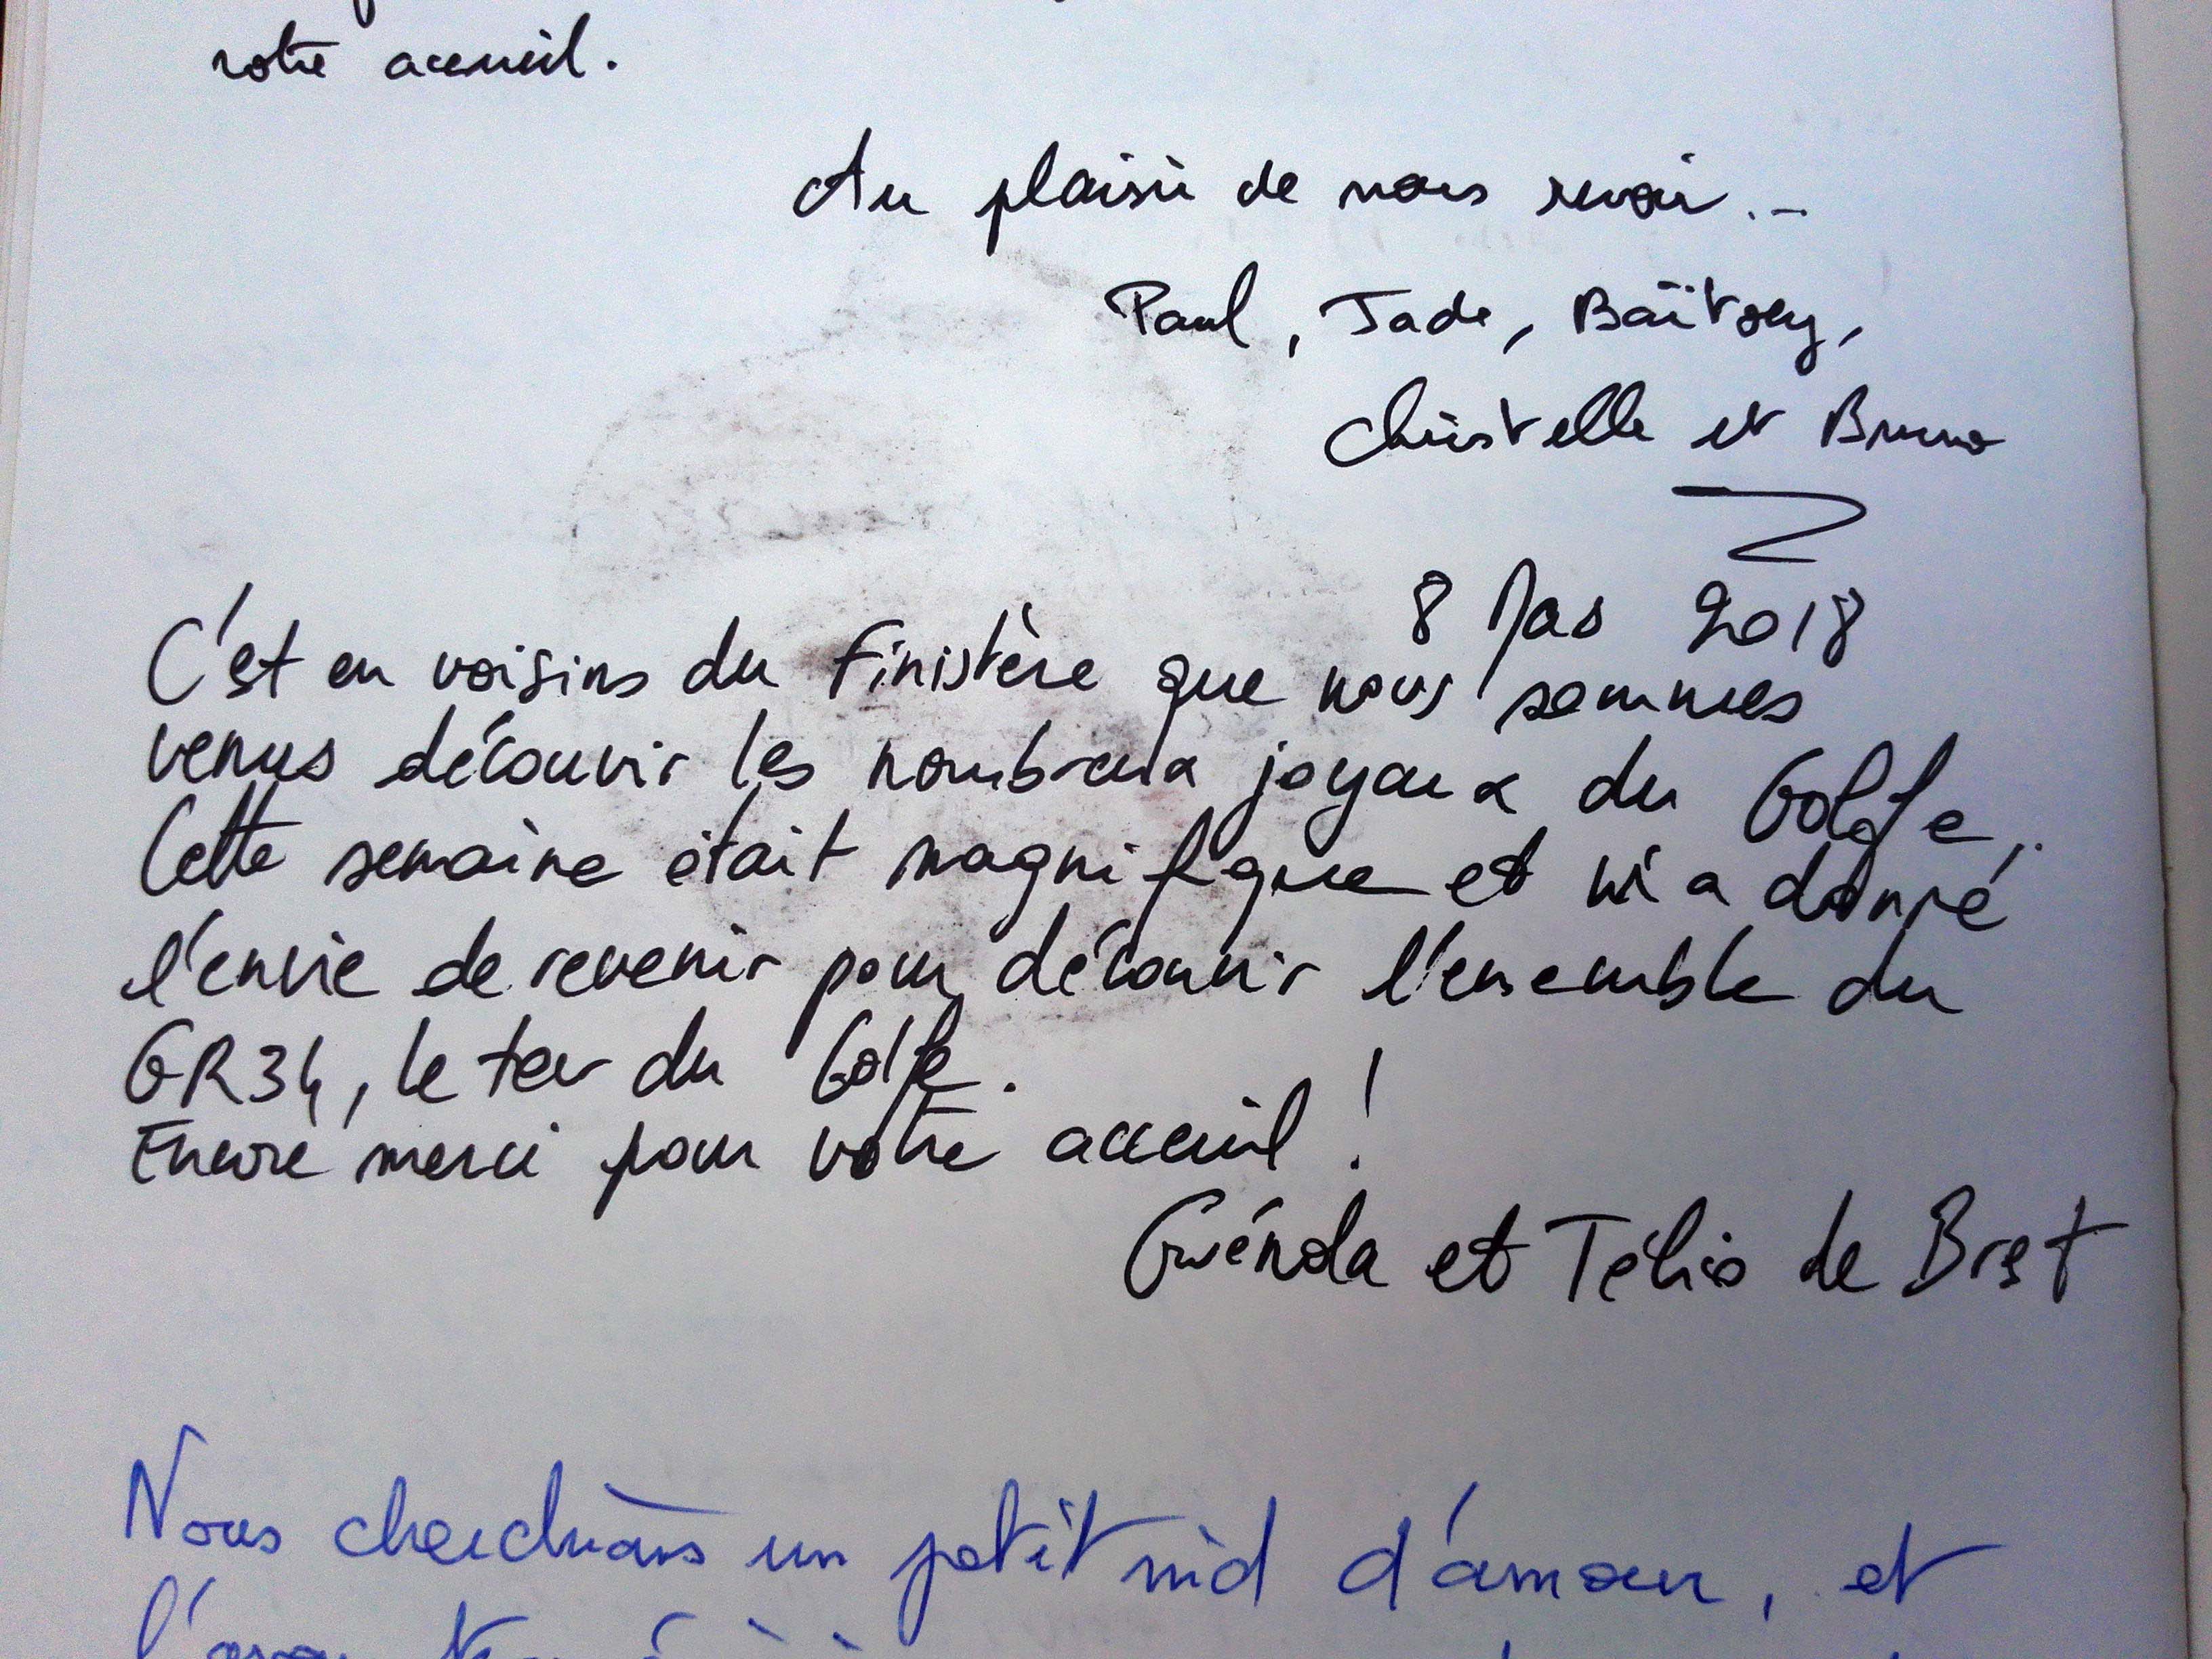 votre accueil.
Au plaisir de nous revoir...
Paul, Jade, Baïtsey,
Christelle et Bruno
8 Mars 2018
C'est en voisins du Finistère que nous sommes
venus découvrir les nombreux joyaux du Golfe.
Cette semaine était magnifique et m'a donné
l'envie de revenir pour découvrir l'ensemble du
GR34, le tour du Golfe.
Encore merci pour votre acceuil !
Gwénola et Télio de Brest
Nous cherchions un petit nid d'amour, et